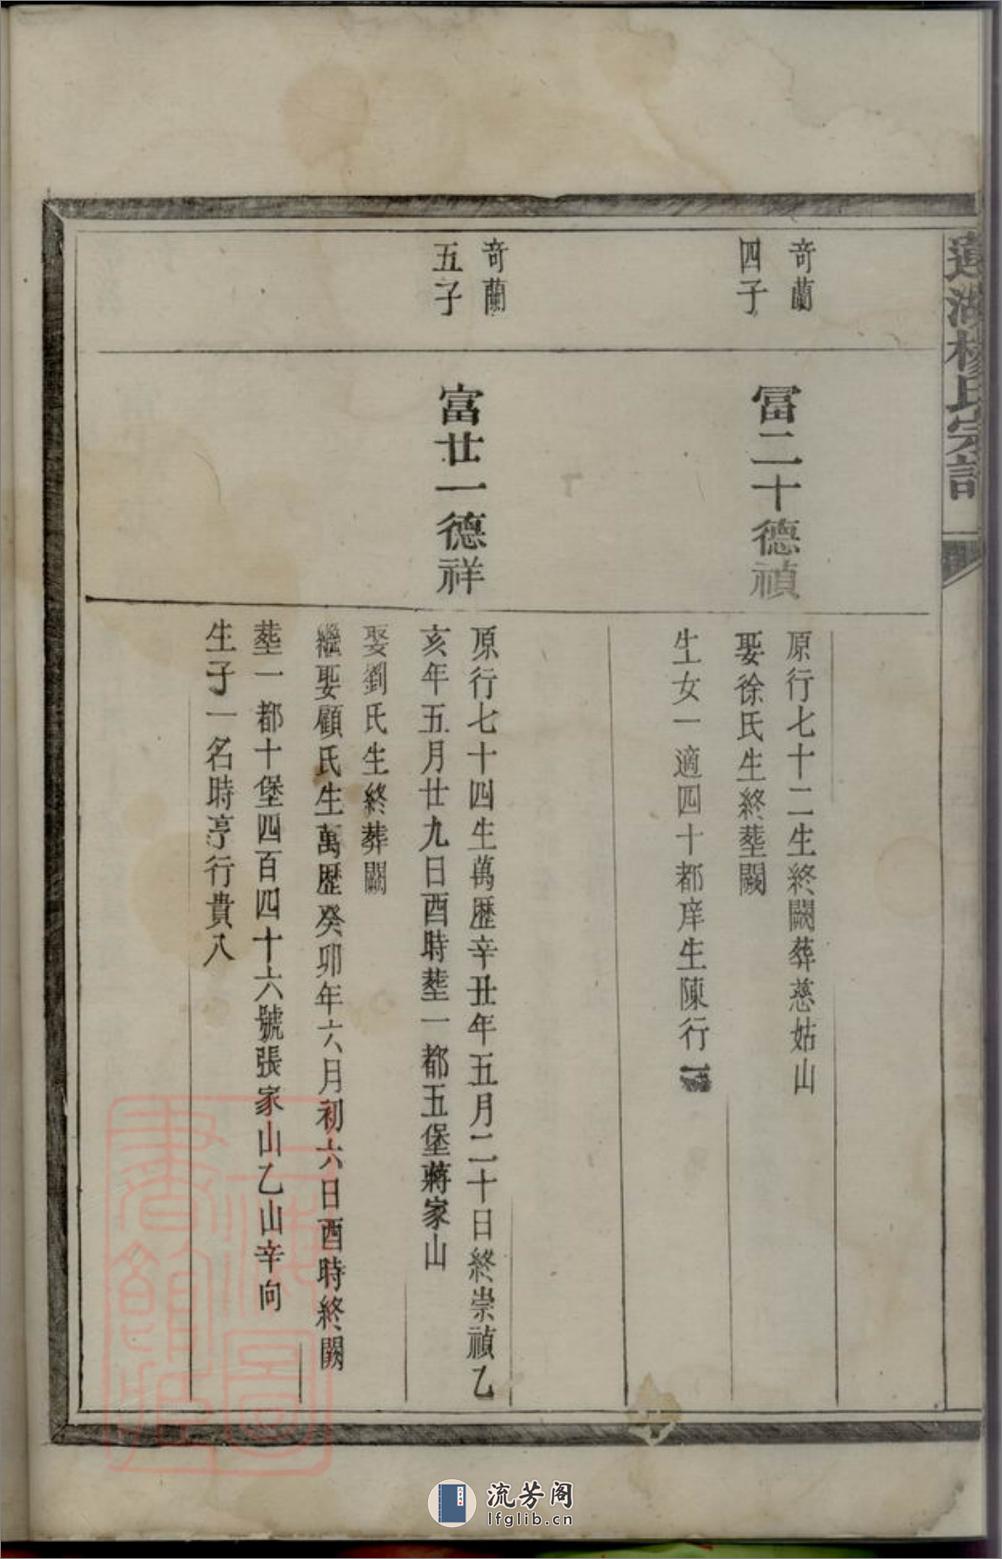 蓮湖楊氏宗譜
奇蘭
四子
冨二十德禎
原行七十二生終闕葬慈姑山
娶徐氏生終塟闕
生女一適四十都庠生陳行
奇蘭
五子
富廿一德祥
原行七十四生萬歷辛丑年五月二十日終崇禎乙
亥年五月廿九日酉時塟一都五堡蔣家山
娶劉氏生終葬闕
繼娶顧氏生萬歷癸卯年六月初六日酉時終闕
塟一都十堡四百四十六號張家山乙山辛向
生子一名時亭行貴八
上海圖書館藏
流芳阁
lfglib.cn